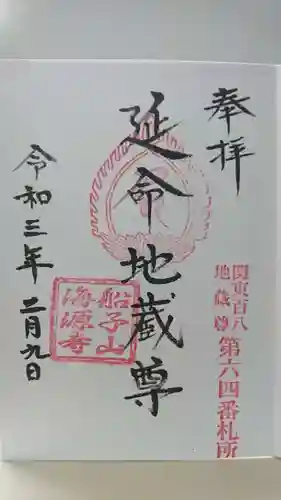 奉拝
関東百八
地蔵尊
第六四番札所
延命地蔵尊
船子山
海源寺
令和三年二月九日